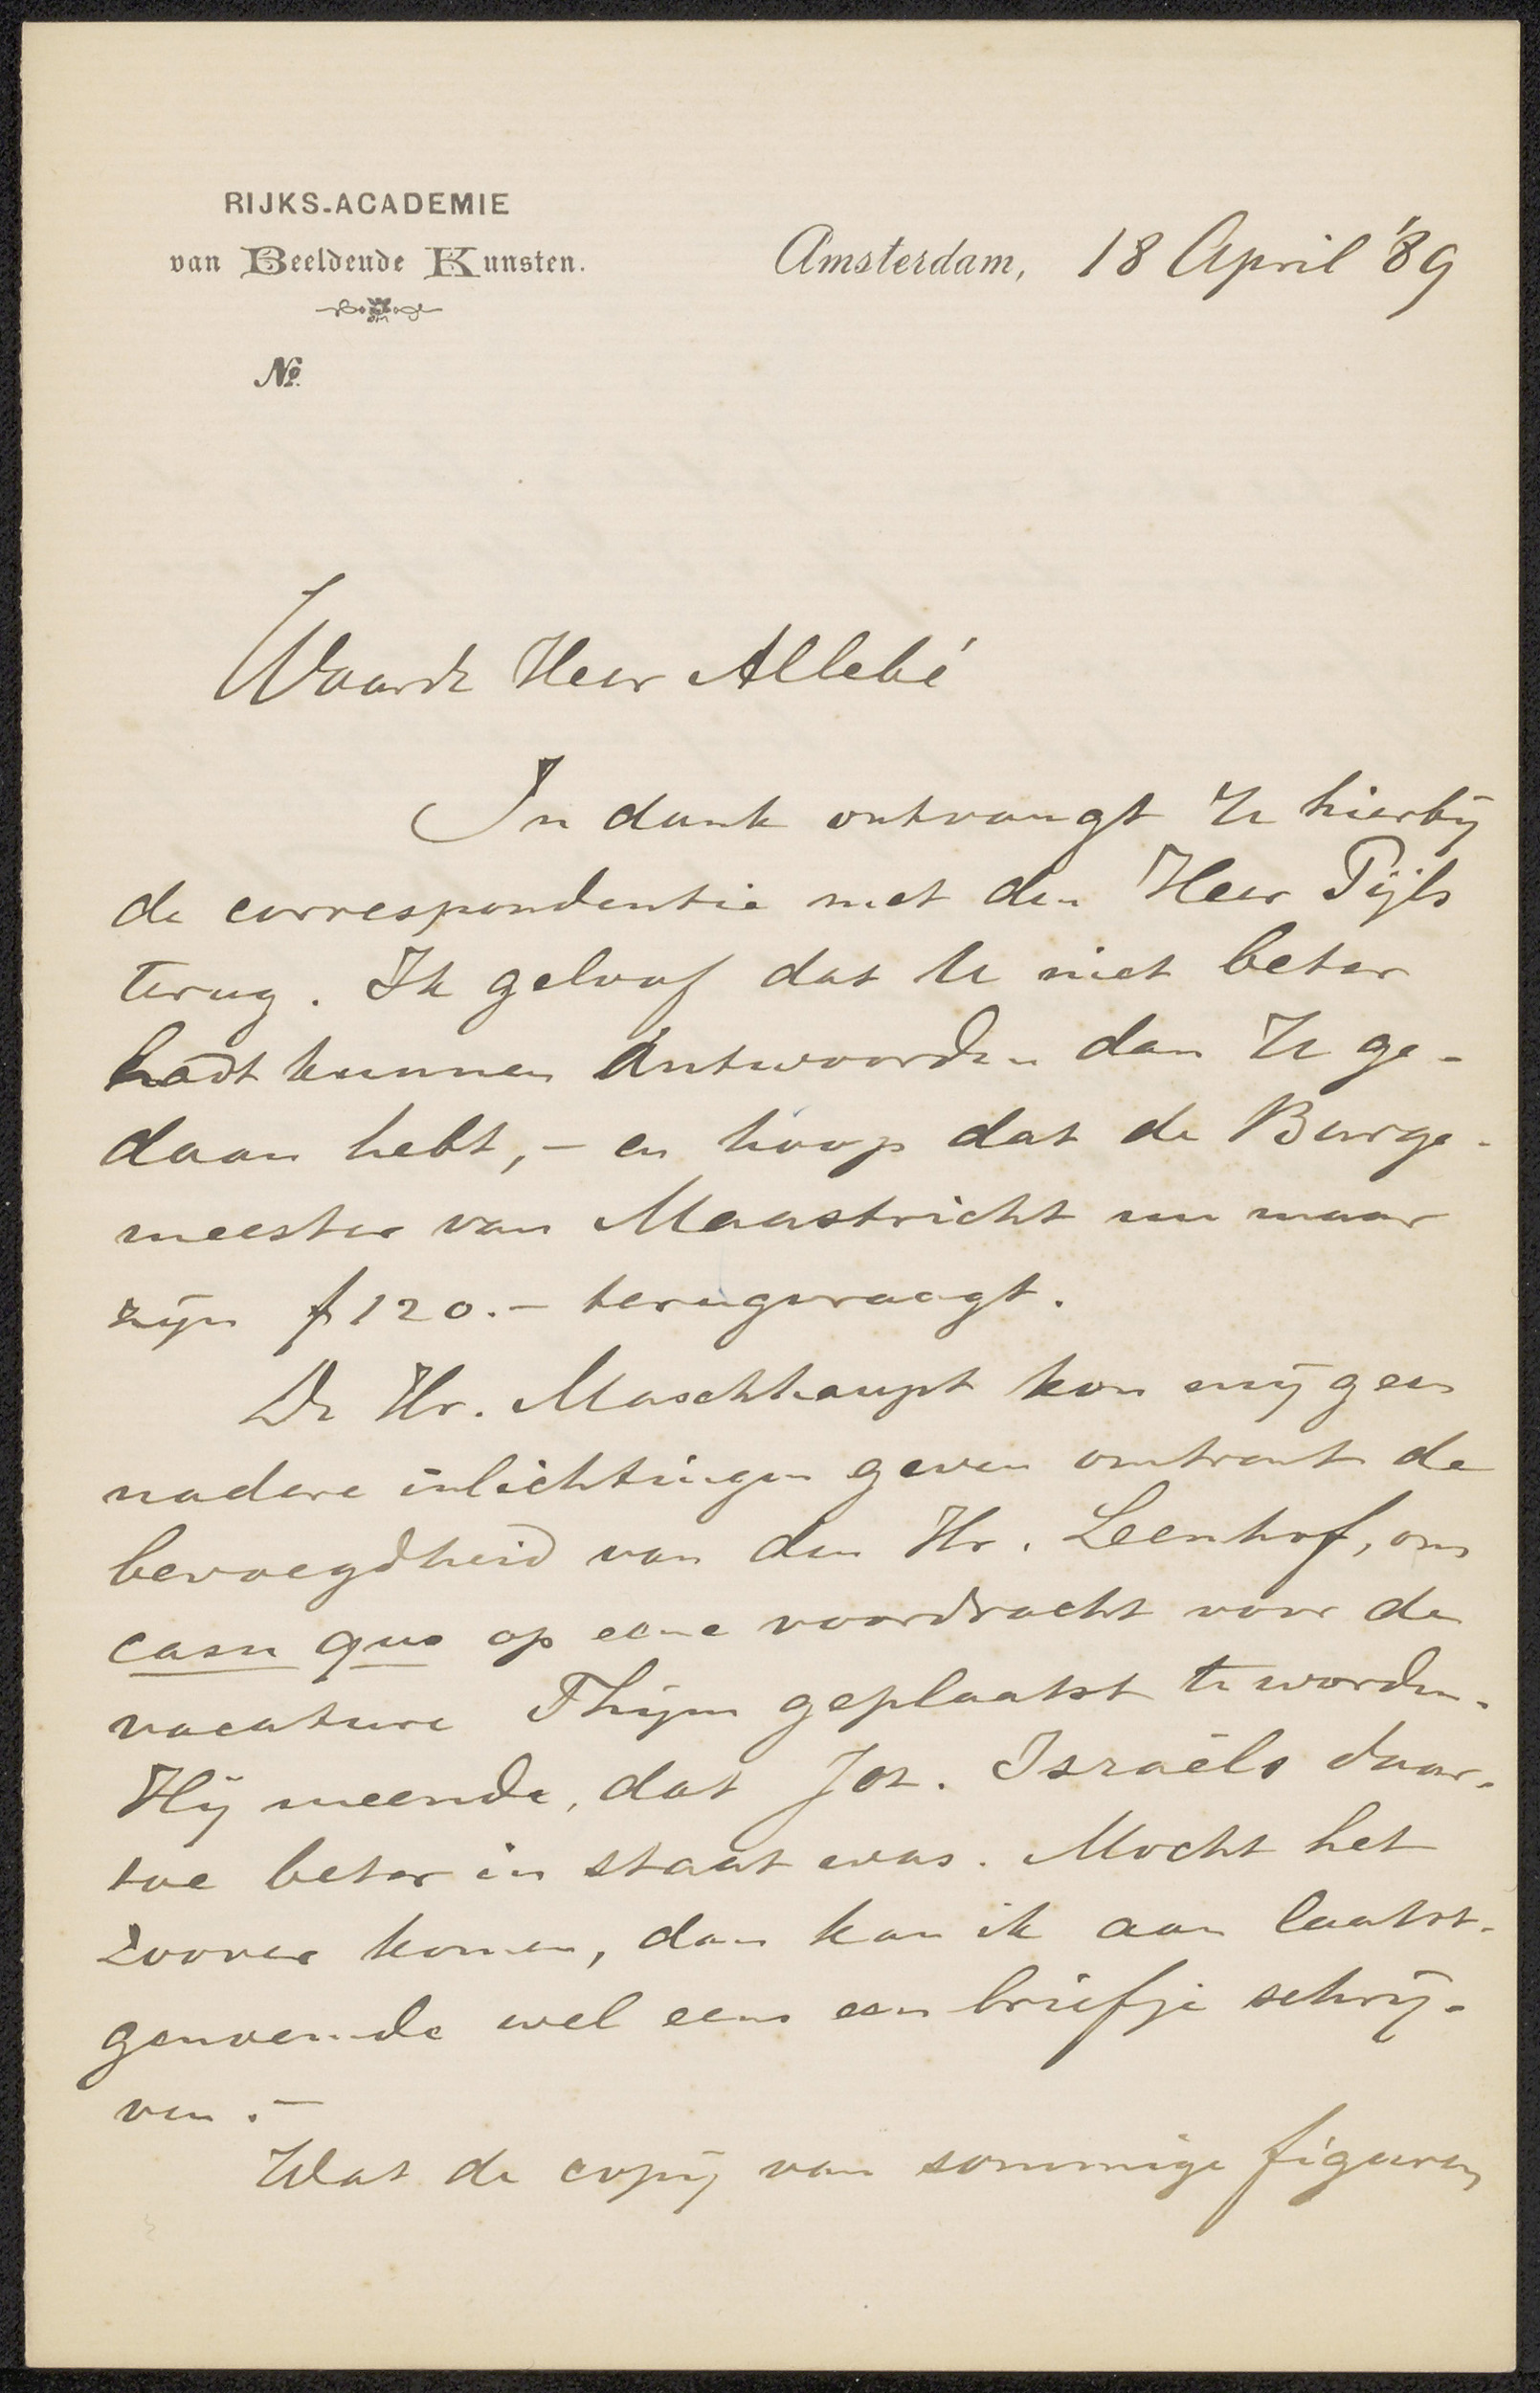 RIJKS-ACADEMIE
van Beeldende Kunsten.
Amsterdam, 18 April '89
No.
Waarde Heer Allebé
In dank ontvangt U hierbij
de correspondentie met den Heer Pijls
terug. Ik geloof dat U niet beter
hadt kunnen antwoorden dan U ge-
daan hebt, – en hoop dat de Burge-
meester van Maastricht nu maar
zijn f 120.– terugvraagt.
De Hr. Maschhaupt kon mij geen
nadere inlichtingen geven omtrent de
bevoegdheid van den Hr. Leenhof, om
casu quo op eene voordracht voor de
vacature Thijm geplaatst te worden.
Hij meende, dat Jos. Israëls daar-
toe beter in staat was. Mocht het
zoover komen, dan kan ik aan laatst-
genoemde wel eens een briefje schrij-
ven. –
Wat de copij van sommige figuren